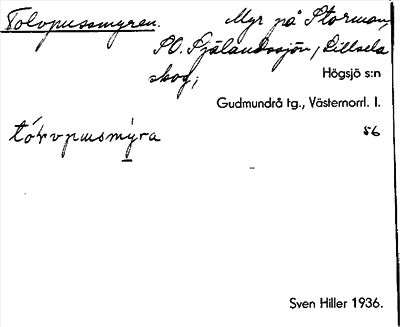 Tolvpussmyren. Myr på Storman,
SO. Själandssjön, Lillsela
skog;
Högsjö s:n
Gudmundrå tg., Västernorrl. l.
tóḷvpusmỳra 56
Sven Hiller 1936.